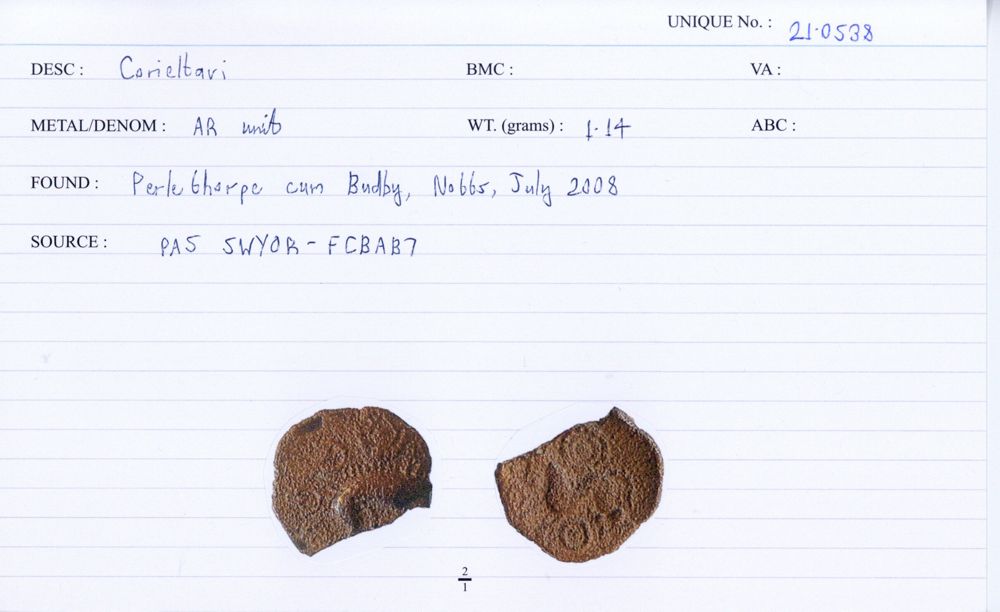 UNIQUE No. : 21.0538
DESC : Corieltavi BMC : VA :
METAL/DENOM : AR unit WT. (grams) : 1.14 ABC :
FOUND : Perlethorpe cum Budby, Notts, July 2008
SOURCE : PAS SWYOR-FCBAB7
2
1